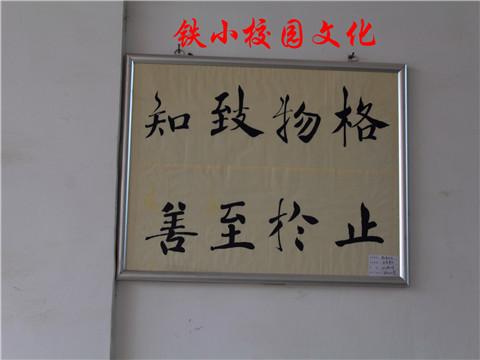 铁小校园文化
格物致知
止於至善